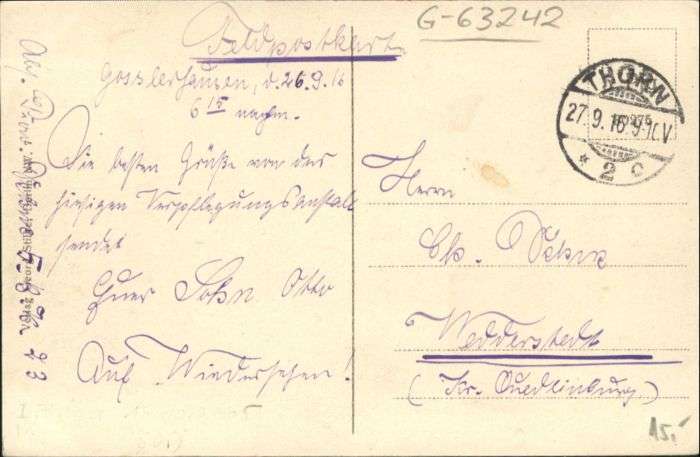 G-63242
Feldpostkarte
Gosslerhausen, d. 26.9.16
6 15 nachm.
Die besten Grüße von der
hiesigen Verpflegungsanstalt
sendet
Euer Sohn Otto
Auf Wiedersehen!
THORN
27.9.16.9-10V
* 2 c
Herrn
Ch.
Wedderstedt
(Kr. Quedlinburg.)
15.-
Abs.